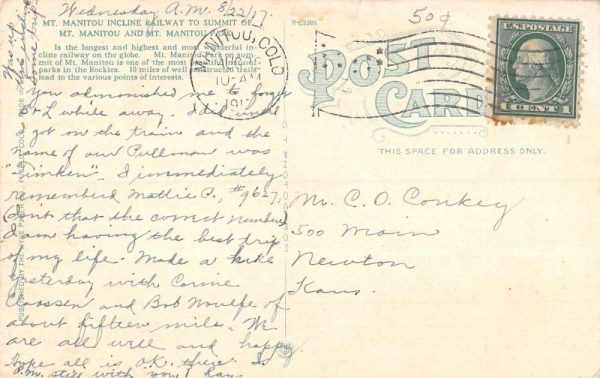 Wednesday A.M. 8/22/17.
50¢
MT. MANITOU INCLINE RAILWAY TO SUMMIT OF
MT. MANITOU AND MT. MANITOU PARK.
R-53385
Is the longest and highest and most wonderful in-
cline railway on the globe. Mt. Manitou Park on sum-
mit of Mt. Manitou is one of the most natural
parks in the Rockies. 10 miles of well constructed trails
lead to the various points of interest.
MANITOU, COLO
AM
1917
U.S. POSTAGE
1 CENT 1
POST
CARD
THIS SPACE FOR ADDRESS ONLY.
You admonished me to forget
L while away. I did until I
got on the train and the
name of our Pullman was
"Timken". I immediately
remembered Mattie P., #9627.
(Isn't that the correct number)
I am having the best trip
of my life. Made a hike
yesterday with Corine
Claassen and Bob Woulfe of
about fifteen mile. We
are all well and happy.
Hope all is O.K. there. Is
P.M. still with you? Ray.
Mr. C. O. Conkey
500 Main
Newton
Kans.